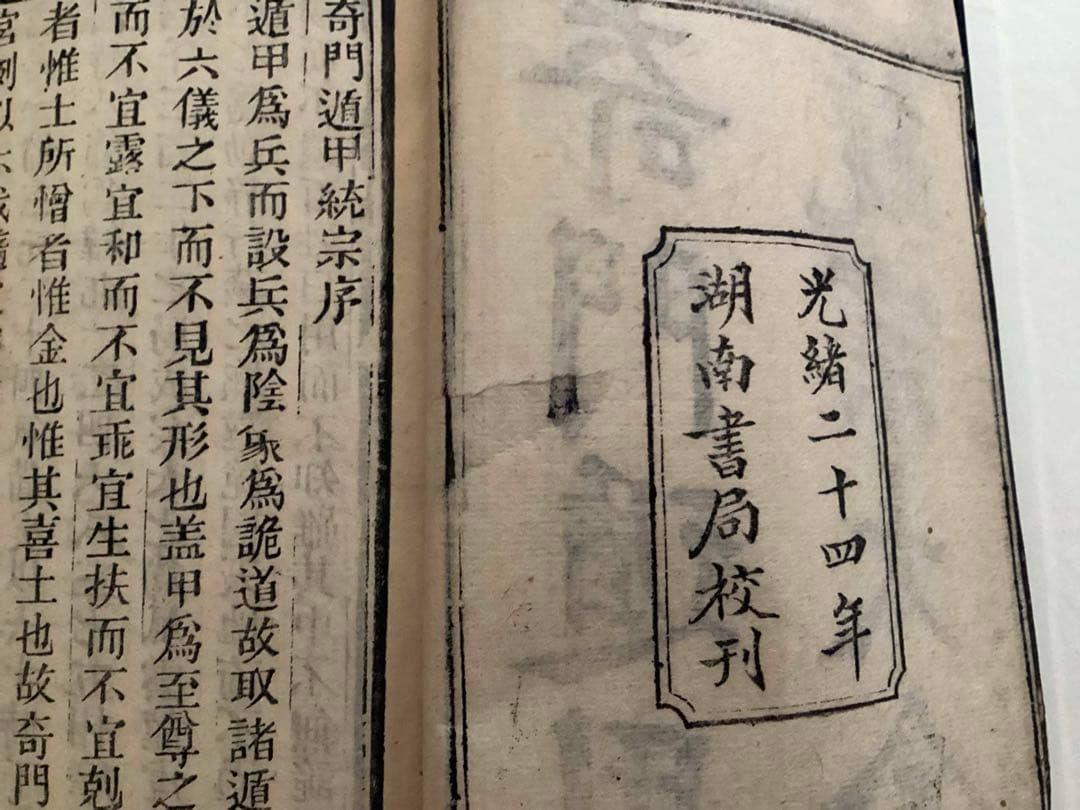 光緒二十四年
湖南書局校刊
奇門遁甲統宗序
遁甲爲兵而設兵爲陰象爲詭道故取諸遁
於六儀之下而不見其形也盖甲爲至尊之
而不宜露宜和而不宜乖宜生扶而不宜剋
者惟士所憎者惟金也惟其喜士也故奇門